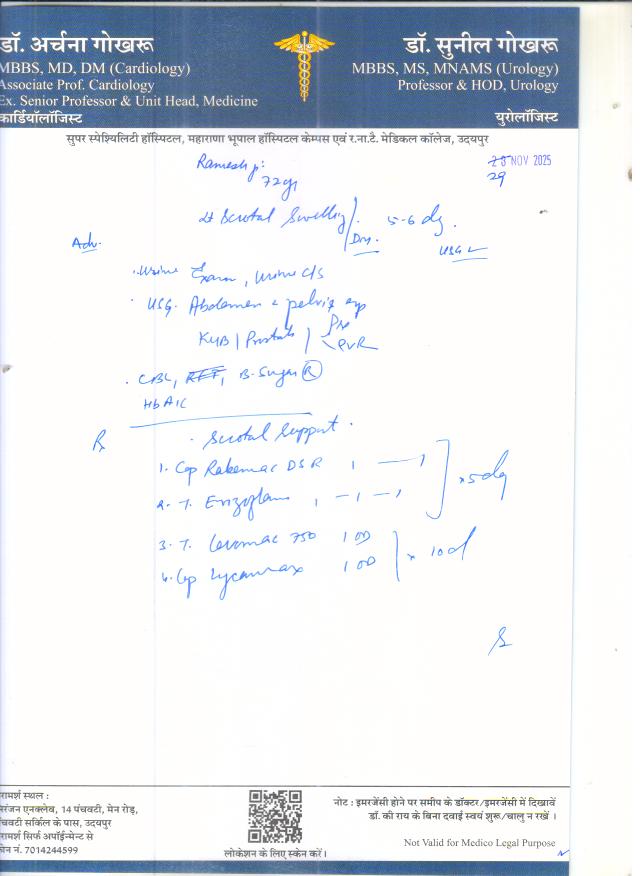 डॉ. अर्चना गोखरू
MBBS, MD, DM (Cardiology)
Associate Prof. Cardiology
Ex. Senior Professor & Unit Head, Medicine
कार्डियॉलॉजिस्ट
डॉ. सुनील गोखरू
MBBS, MS, MNAMS (Urology)
Professor & HOD, Urology
युरोलॉजिस्ट
सुपर स्पेश्यिलिटी हॉस्पिटल, महाराणा भूपाल हॉस्पिटल केम्पस एवं र.ना.टै. मेडिकल कॉलेज, उदयपुर
Ramesh ji
72 yr
NOV 2025
29
Lt Scrotal Swelling / 5-6 dy.
USG
Adv.
. Urine Exam, Urine C/S
. USG. Abdomen & pelvis
KUB | Prostate | Pre
PVR
. CBC, RFT, B-Sugar (R)
HbA1C
Rx
. Scrotal Support.
1. Cap Rabemac DSR 1 — 1
2. T. Enzoflam 1 - 1 - 1
x 5 dy
3. T. Levomac 750 1 OD
4. Cap Lycomax 1 OD
x 10 d
रामर्श स्थल :
रंजन एनक्लेव, 14 पंचवटी, मेन रोड़,
चवटी सर्किल के पास, उदयपुर
रामर्श सिर्फ अपॉईन्मेंट से
ोन नं. 7014244599
लोकेशन के लिए स्केन करें।
नोट : इमरजेंसी होने पर समीप के डॉक्टर/इमरजेंसी में दिखावें
डॉ. की राय के बिना दवाई स्वयं शुरू/चालु न रखें ।
Not Valid for Medico Legal Purpose